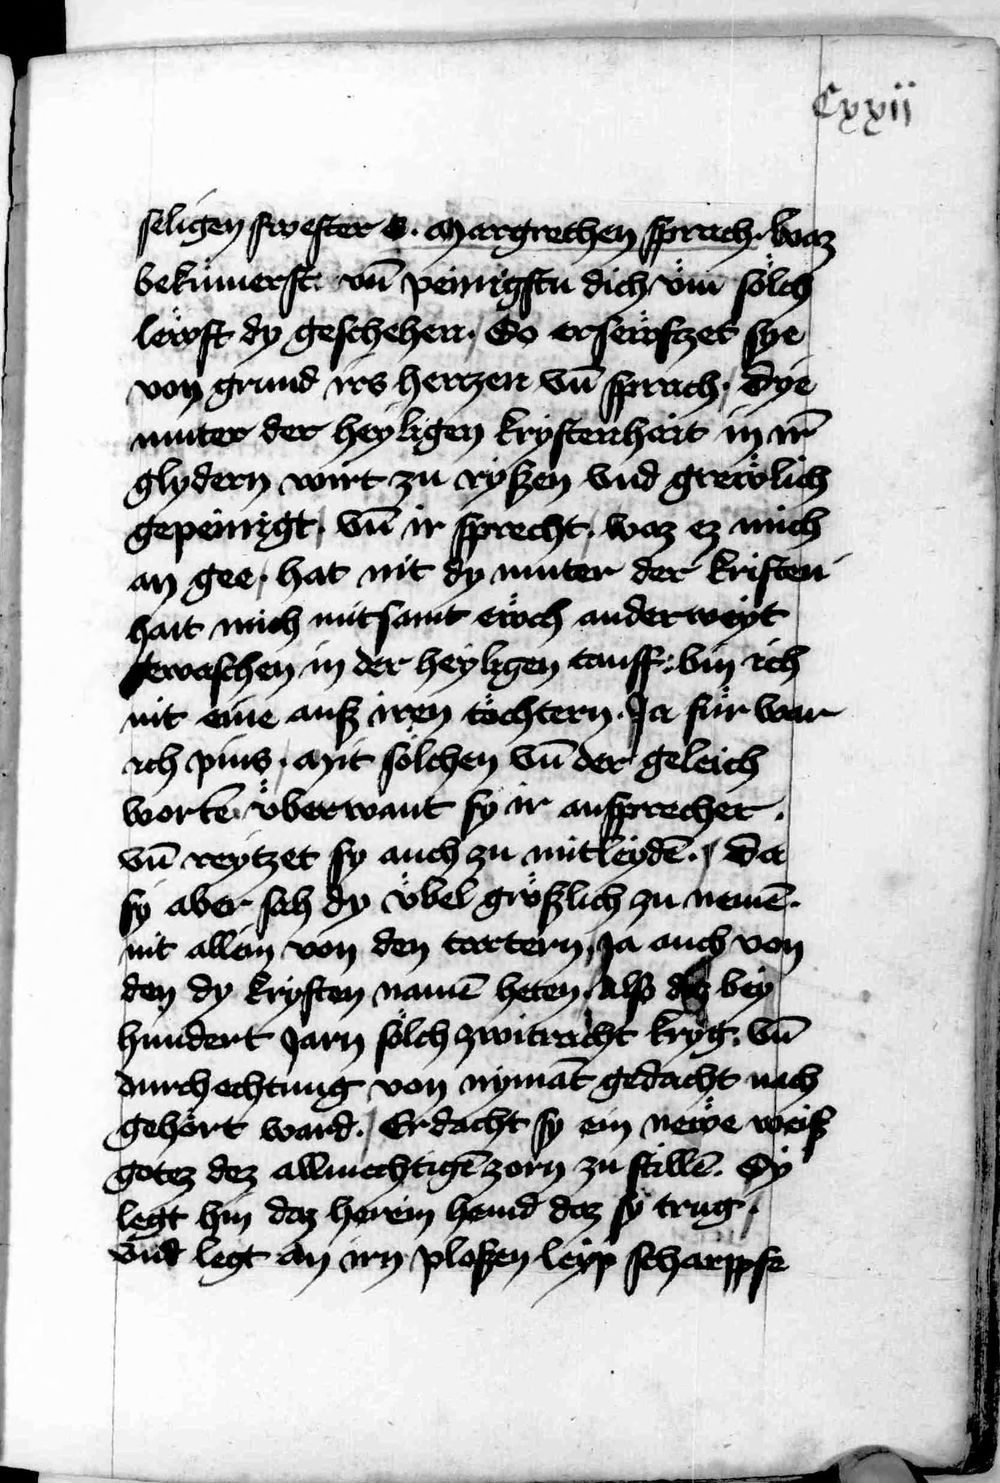 Cxxii
seligen swester S. Margrethen sprach. waz
bekümerst. vn̄ peinigstu dich vm̈ sölch
leẅft dy geschehen. Do erseẅfzet sye
von grund irs hertzen vn̄ sprach. Dye
muter der heyligen krystenhait in irn̄
glydern wirt zu ryßen vnd greẅlich
gepeinigt. vn̄ ir sprecht. waz ez mich
an gee. hat nit dy muter der kristen
hait mich mitsamt eẅch anderweyt
gewaschen in der heyligen tauff. bin ich
nit eine auß iren töchtern. Ja für war
ich pins. Mit sölchen vn̄ der geleich
worten v̈berwant sy ir ansprecher.
vn̄ reytzet sy auch zu mitleydē. Da
sy aber sah dy v̈bel größlich zu nemē.
nit allein von den tartern, Ja auch von
den dy krysten namē heten. Alß daz bey
hundert Jarn sölch zwitracht kryg. vn̄
durchechtung von nymāt gedacht nach
gehört ward. Erdacht sy ein neẅe weiß
gotez dez allmechtigē zorn zu stillē. Sy
legt hin daz herein hemd daz sy trug.
vnd legt an irn ploßen leyp scharppfe